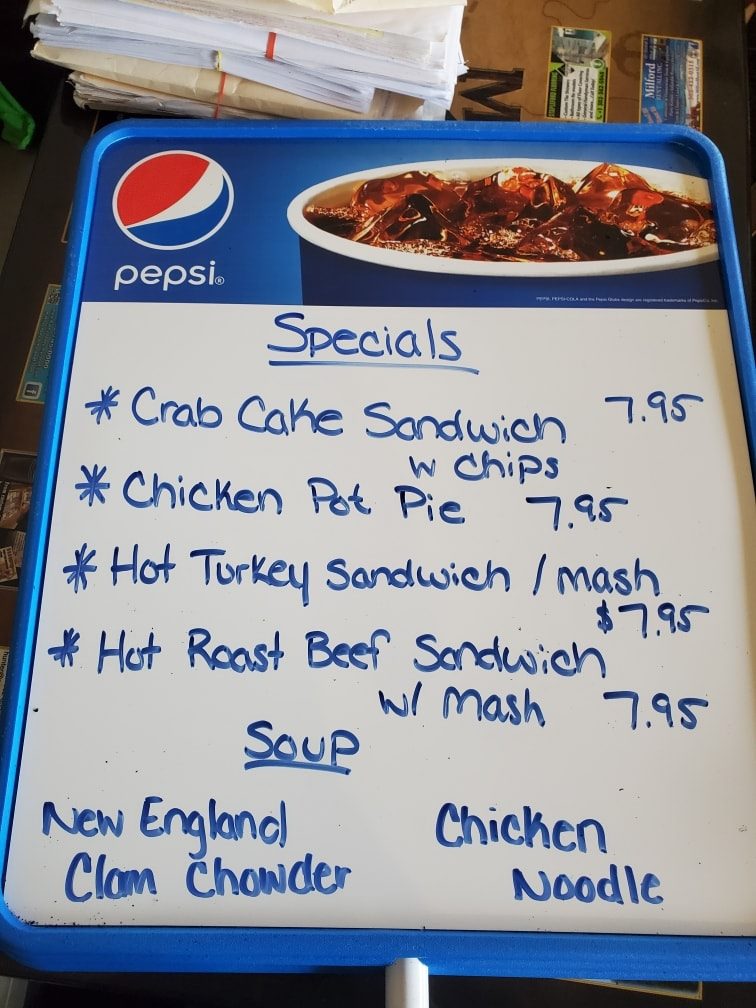 Milford
pepsi®
PEPSI, PEPSI-COLA and the Pepsi Globe design are registered trademarks of PepsiCo, Inc.
Specials
* Crab Cake Sandwich 7.95
w chips
* Chicken Pot Pie 7.95
* Hot Turkey Sandwich / mash
$7.95
* Hot Roast Beef Sandwich
w/ Mash 7.95
Soup
New England
Clam Chowder
Chicken
Noodle